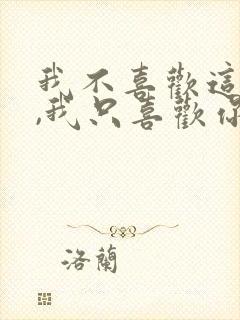 我不喜歡這
,我只喜歡你
洛蘭